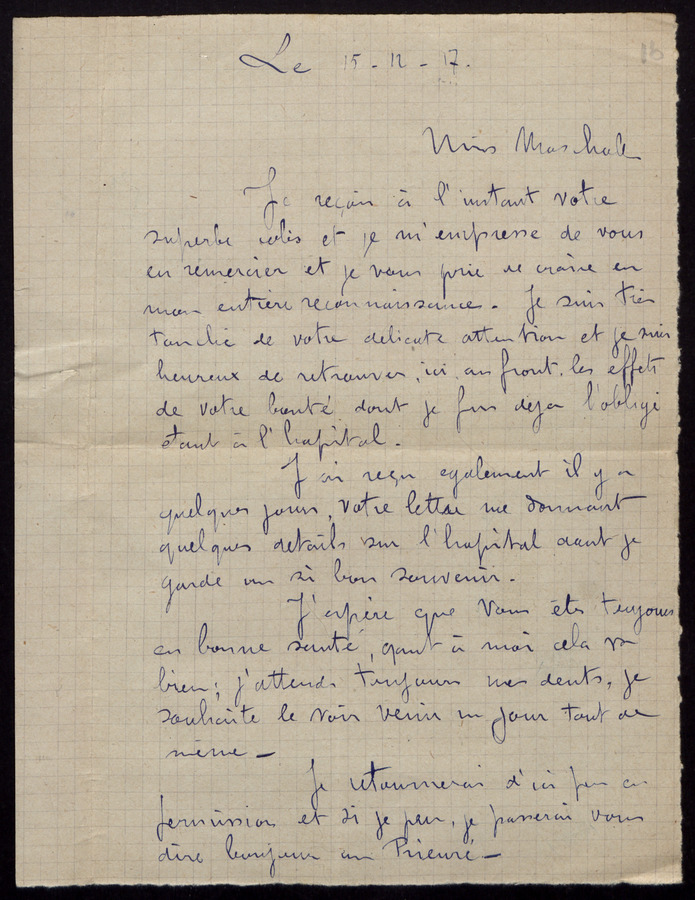 16
Le 15-12-17.
Miss Maschall
Je reçois à l'instant votre
superbe colis et je m'empresse de vous
en remercier et je vous prie de croire en
mon entière reconnaissance. Je suis très
touché de votre délicate attention et je suis
heureux de retrouver, ici au front, les effets
de votre bonté dont je fus déjà l'obligé
étant à l'hopital.
J'ai reçu également il y a
quelques jours, votre lettre me donnant
quelques détails sur l'hopital dont je
garde un si bon souvenir.
J'espère que vous êtes toujours
en bonne santé, quant à moi cela va
bien; j'attends toujours mes dents, je
souhaite le voir venir un jour tout de
même -
Je retournerai d'ici peu en
permission et si je peu, je passerai vous
dire bonjour au Prieuré -